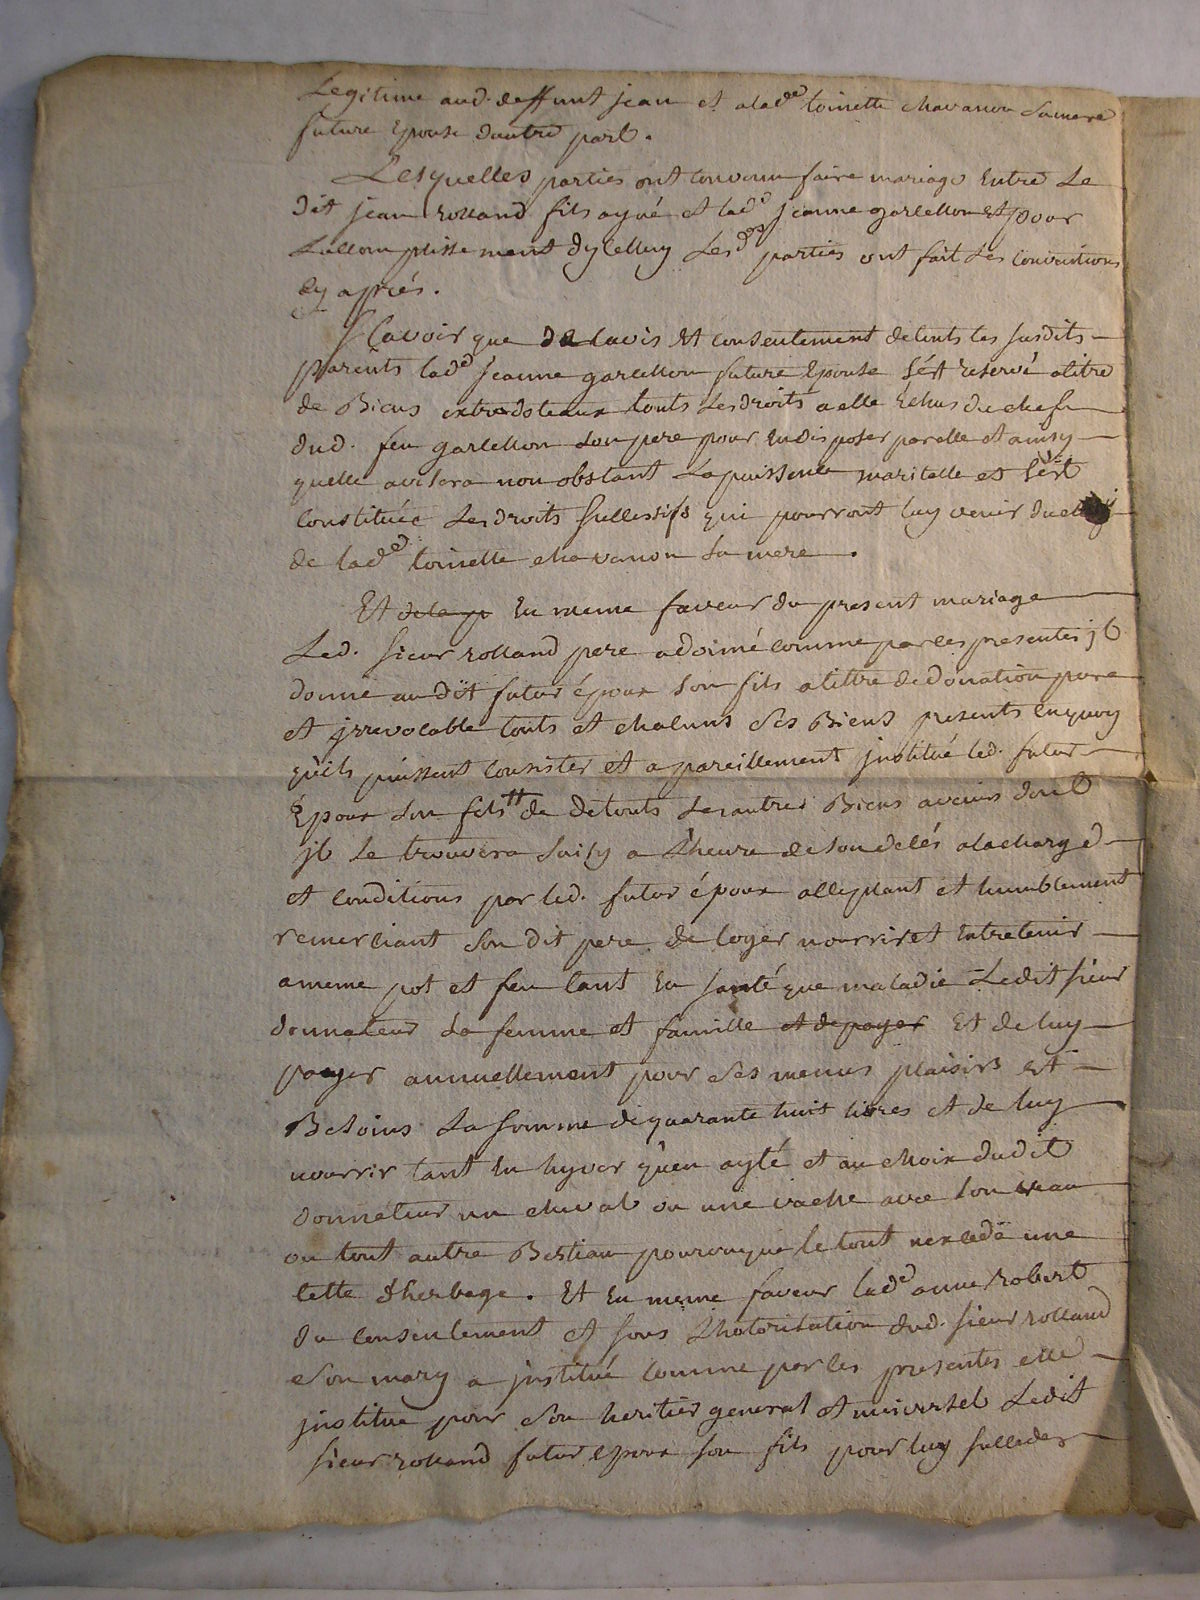 Legitime aud. deffunt jean et a lad.e toinette chavanon sa mere
future Epouse dautre part.
Lesquelles parties ont convenu faire mariage Entre Le
dit jean rolland fils ayné et lad.e jeanne garchon Et pour
Laccomplissement dycelluy Lesd.es parties ont fait Les conventions
cy aprés.
Scavoir que de lavis Et consentement de touts les susdits
parents lad.e jeanne garchon future Epouse s'ést reservé a titre
de Biens extradotaux touts les droits a elle Echus du chef
dud. feu garchon son pere pour En disposer par elle et ainsy
quelle avisera non obstant La puissence maritalle et s'ést
constituée Les droits successifs qui pourront luy venir du chef
de lad.e toinette chavanon sa mere.
Et de la p En meme faveur du present mariage
Led. sieur rolland pere a donné comme par ces presentes jl
donne au dit futur époux son fils a tittre de donation pure
et jrrevocable touts et chacuns ses Biens presents en quoy
qu'ils puissent consister et a pareillement jnstitué led. futur
Epoux son fils de de touts les autres Biens avenir dont
jl se trouvera saisy a L'heure de son decés a la charge
et conditions par led. futur époux acceptant et humblement
remerciant son dit pere de loger nourrir et Entretenir
a meme pot et feu tant En santé que maladie Ledit sieur
donnateur sa femme et famille et de payer Et de luy
payer annuellement pour ses menus plaisirs Et
Besoins La somme de quarante huit livres et de luy
nourrir tant En hyver qu'en ayté et au choix dudit
donnateur un cheval ou une vache avec son veau
ou tout autre Bestiau pourvu que le tout nexcede une
tette d'herbage. Et En meme faveur lad.e anne robert
du consentement et sous L'hotorisation dud. sieur rolland
son mary a jnstitué comme par les presentes elle
jnstitue pour son heritier general et universel Ledit
sieur rolland futur Epoux son fils pour luy succeder